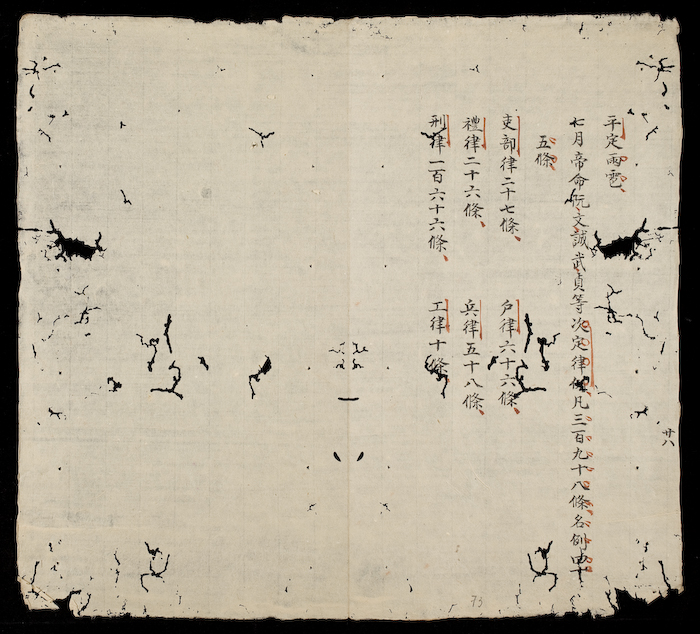 廿八
平定雨雹
七月帝命阮文誠武貞等次定律凡三百九十八條名例四十
五條
吏部律二十七條 戶律六十六條
禮律二十六條 兵律五十八條
刑律一百六十六條 工律十條
73